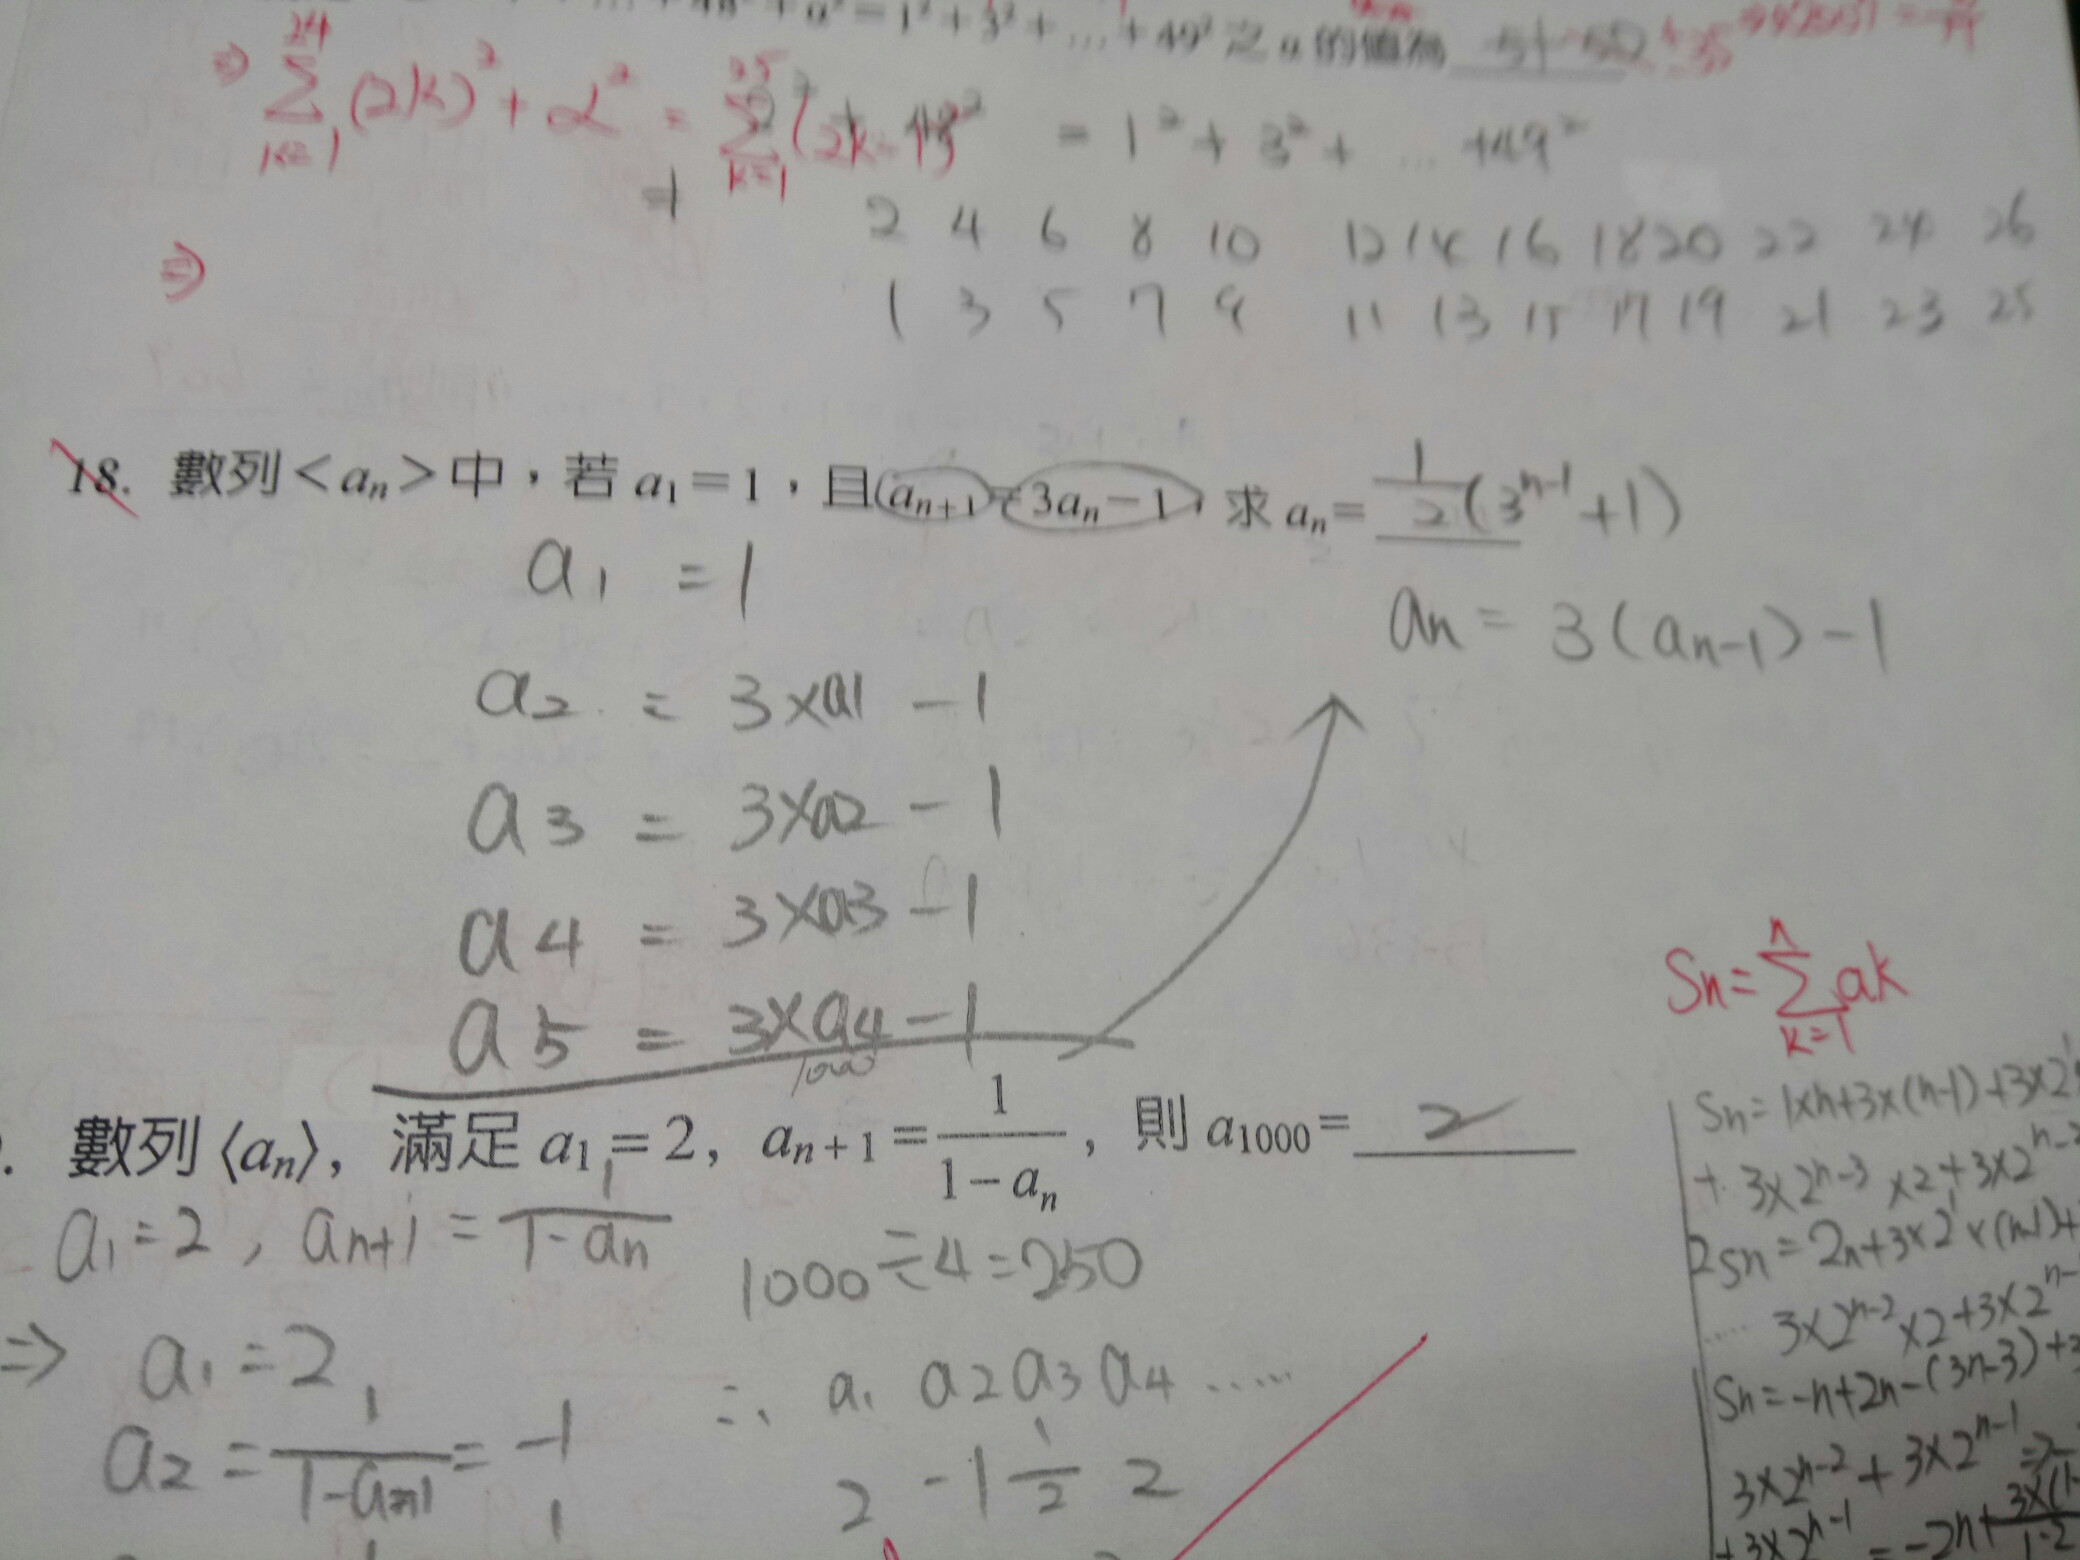 +a²=1²+3²+…+49²之a的值為
⇒ Σ(2k)²+α² = Σ(2k-1)² = 1²+3²+ … +49²
24 k=1 25 k=1
2 4 6 8 10 12 14 16 18 20 22 24 26
⇒ 1 3 5 7 9 11 13 15 17 19 21 23 25
18. 數列<aₙ>中，若a₁=1，且aₙ₊₁=3aₙ-1，求aₙ= 1/2(3ⁿ⁻¹+1)
a₁ = 1
an = 3(an-1)-1
a2 = 3×a1 -1
a3 = 3×a2 -1
a4 = 3×a3 -1
a5 = 3×a4 -1
1000
Sn=Σak
n k=1
. 數列⟨aₙ⟩, 滿足a₁=2, aₙ₊₁=1/(1-aₙ), 則a₁₀₀₀= 2
a₁=2, an+1 = 1/(1-an)
1000÷4=250
⇒ a₁=2
∴ a₁ a2 a3 a4 ……
a2 = = -1
2 -1 1/2 2
Sn=1×n+3×(n-1)+3×2
+ 3×2ⁿ⁻³×2+3×2ⁿ⁻²
2Sn=2n+3×2¹×(n-1)+
…… 3×2ⁿ⁻²×2+3×2ⁿ⁻
Sn=-n+2n-(3n-3)+3
3×2ⁿ⁻²+3×2ⁿ⁻¹
+3×2ⁿ⁻¹ = -2n+